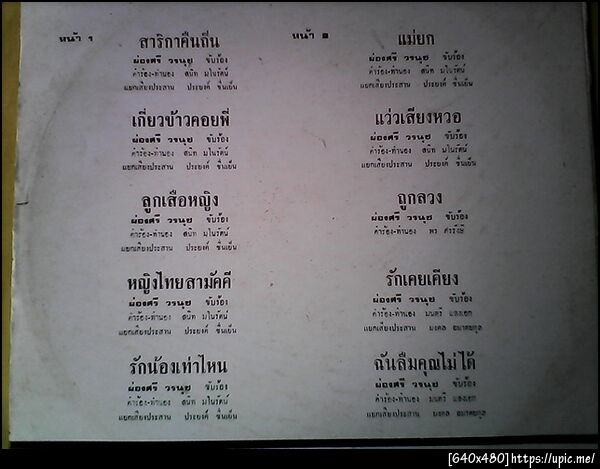 หน้า ๑
สาริกาคืนถิ่น
ผ่องศรี วรนุช ขับร้อง
คำร้อง-ทำนอง สนิท มโนรัตน์
แยกเสียงประสาน ประยงค์ ชื่นเย็น
เกี่ยวข้าวคอยพี่
ผ่องศรี วรนุช ขับร้อง
คำร้อง-ทำนอง สนิท มโนรัตน์
แยกเสียงประสาน ประยงค์ ชื่นเย็น
ลูกเสือหญิง
ผ่องศรี วรนุช ขับร้อง
คำร้อง-ทำนอง สนิท มโนรัตน์
แยกเสียงประสาน ประยงค์ ชื่นเย็น
หญิงไทยสามัคคี
ผ่องศรี วรนุช ขับร้อง
คำร้อง-ทำนอง สนิท มโนรัตน์
แยกเสียงประสาน ประยงค์ ชื่นเย็น
รักน้องเท่าไหน
ผ่องศรี วรนุช ขับร้อง
คำร้อง-ทำนอง สนิท มโนรัตน์
แยกเสียงประสาน ประยงค์ ชื่นเย็น
หน้า ๒
แม่ยก
ผ่องศรี วรนุช ขับร้อง
คำร้อง-ทำนอง สนิท มโนรัตน์
แยกเสียงประสาน ประยงค์ ชื่นเย็น
แว่วเสียงหวอ
ผ่องศรี วรนุช ขับร้อง
คำร้อง-ทำนอง สนิท มโนรัตน์
แยกเสียงประสาน ประยงค์ ชื่นเย็น
ถูกลวง
ผ่องศรี วรนุช ขับร้อง
คำร้อง-ทำนอง พร
รักเคยเคียง
ผ่องศรี วรนุช ขับร้อง
คำร้อง-ทำนอง มนตรี แสงเอก
แยกเสียงประสาน มงคล อมาตยกุล
ฉันลืมคุณไม่ได้
ผ่องศรี วรนุช ขับร้อง
คำร้อง-ทำนอง มนตรี แสงเอก
แยกเสียงประสาน มงคล อมาตยกุล
[640x480]https://upic.me/